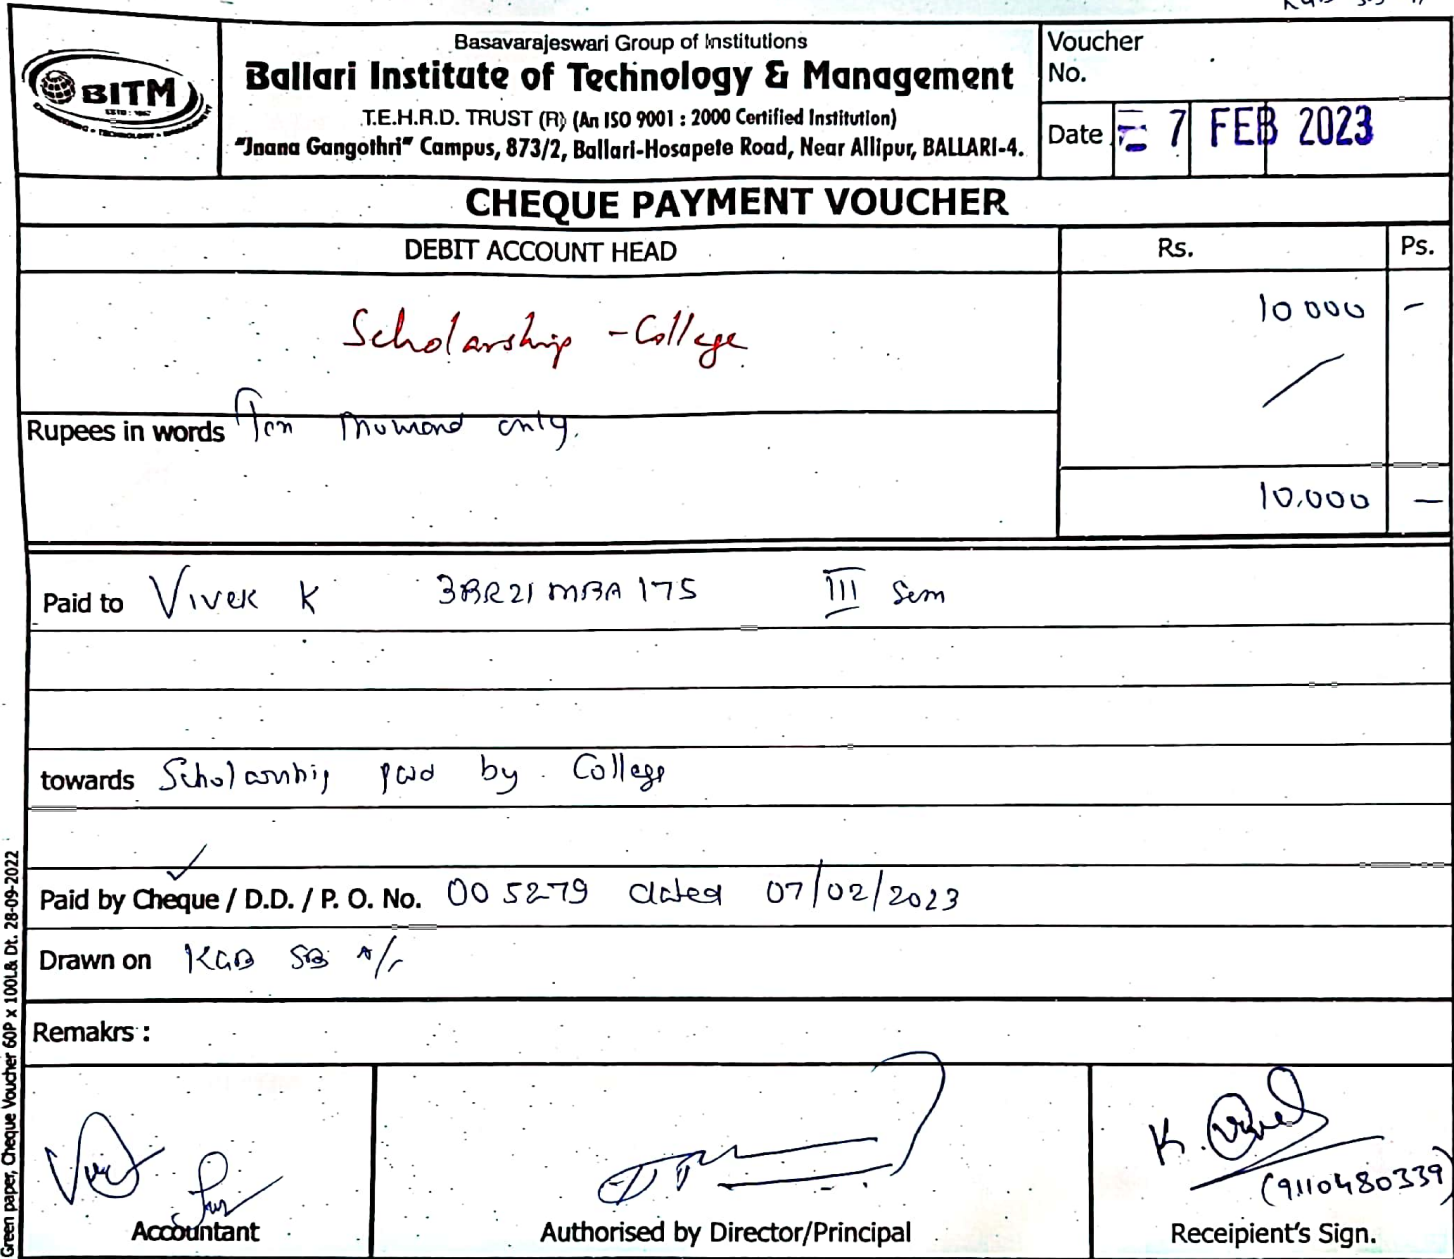 Basavarajeswari Group of Institutions
Ballari Institute of Technology & Management
T.E.H.R.D. TRUST (R) (An ISO 9001 : 2000 Certified Institution)
"Jnana Gangothri" Campus, 873/2, Ballari-Hosapete Road, Near Allipur, BALLARI-4.
BITM
Voucher
No.
Date 7 FEB 2023
CHEQUE PAYMENT VOUCHER
DEBIT ACCOUNT HEAD Rs. Ps.
Scholarship - College 10 000 -
Rupees in words Ten Thousand only.
10,000 —
Paid to Vivek K 3BR21MBA175 III Sem
towards Scholarship paid by College
Paid by Cheque / D.D. / P. O. No. 005279 dated 07/02/2023
Drawn on KGB SB A/c
Remakrs :
K. Vivek
(9110480339)
Accountant Authorised by Director/Principal Receipient's Sign.
Green paper, Cheque Voucher 60P x 100L& Dt. 28-09-2022